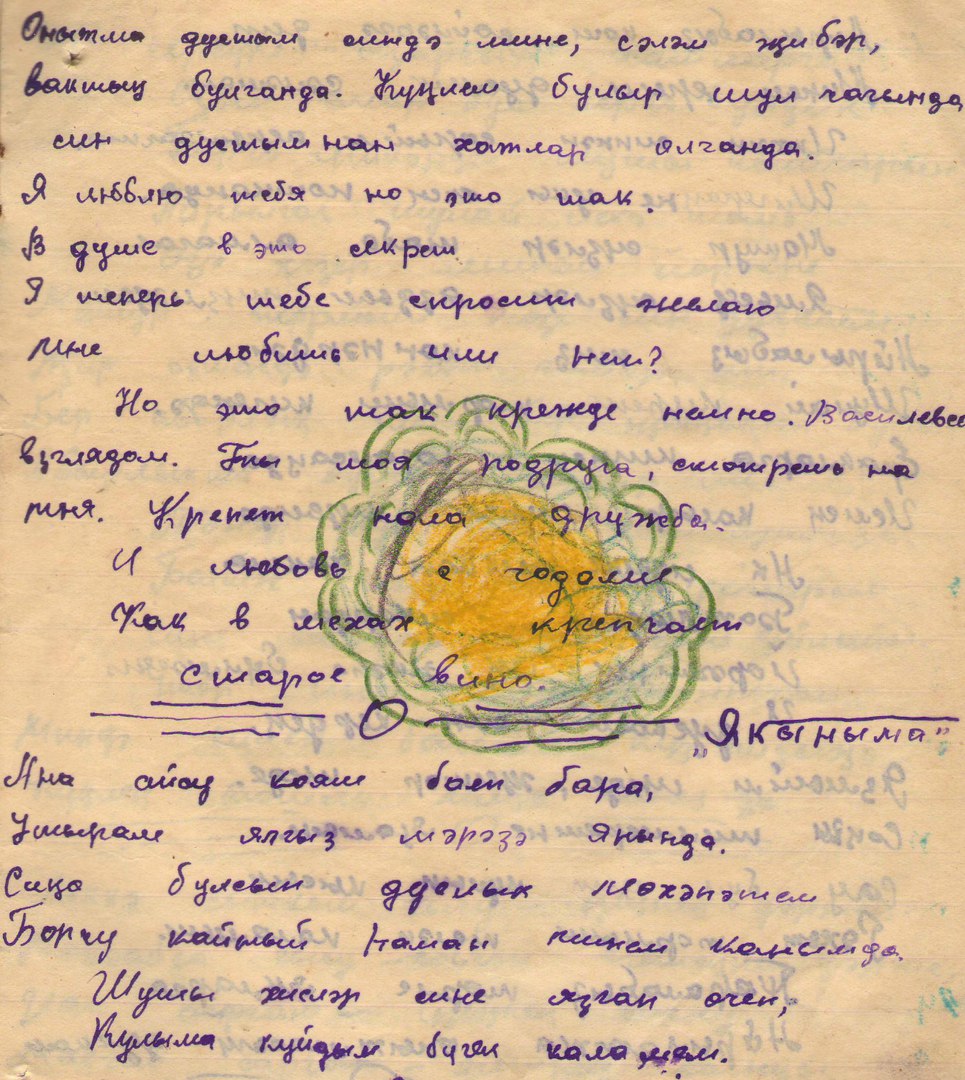 Онытма дустым синдә мине, сәләм җибәр,
вактың булганда. Күңлем булыр шул чагында
син дустымнан хатлар алганда.
Я люблю тебя но это так.
В душе в это секрет
Я теперь тебе спросит желаю
мне любишь или нет?
Но это так прежде немно.
взглядом. Ты моя подруга, смотришь на
мня. Крепет наша дружба.
И любовь с годоми
Как в мехах крепчает
старое вино.
"Якыныма"
Ана айау кояш баеп бара,
Утырам ялгыз тәрәзә янында.
Сиңа булсын дуслык мәхәпәтем
Борчу кайтый һаман минем каныма.
Шушы хисләр сине язган өчен,
Кулыма куйдым бүген каләмем.